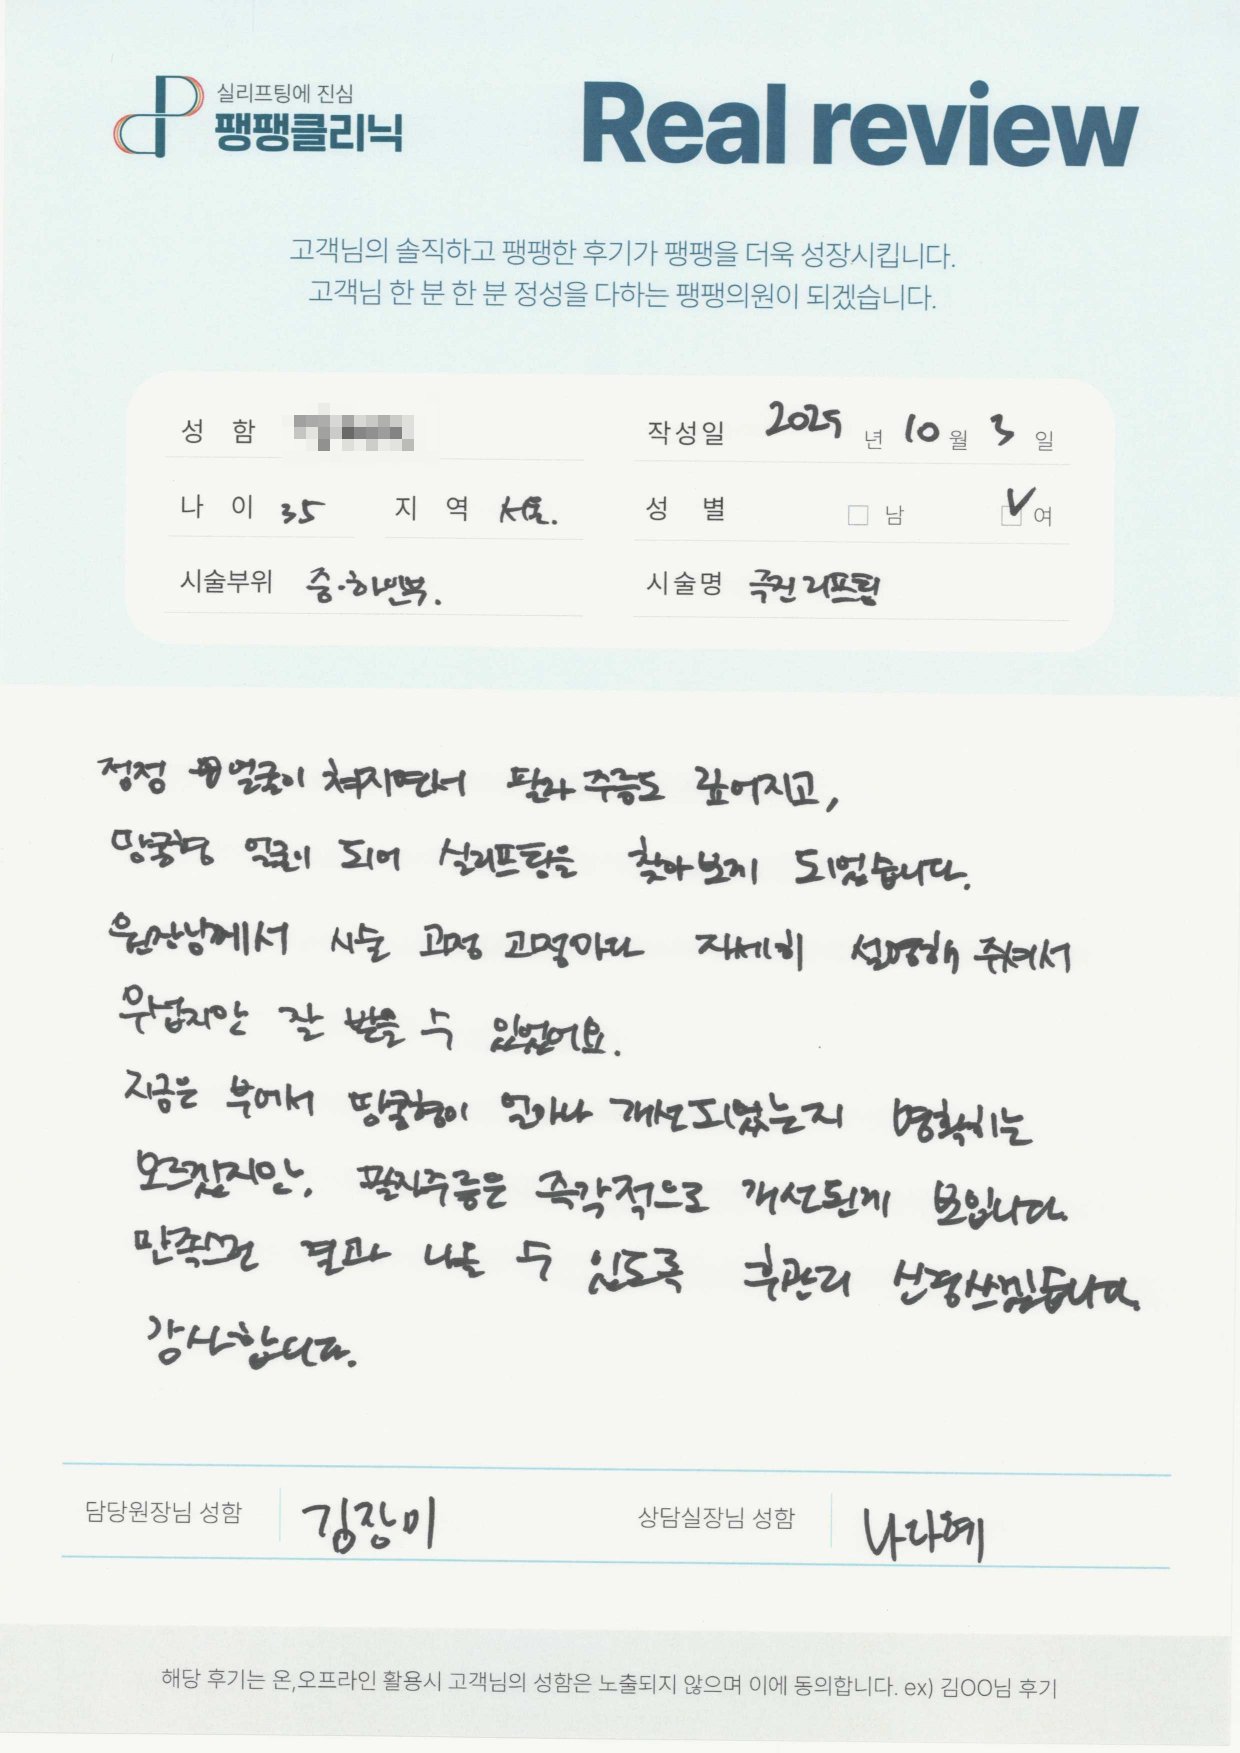 실리프팅에 진심
팽팽클리닉
Real review
고객님의 솔직하고 팽팽한 후기가 팽팽을 더욱 성장시킵니다.
고객님 한 분 한 분 정성을 다하는 팽팽의원이 되겠습니다.
성 함
작성일 2025 년 10 월 3 일
나 이 35 지 역 서초.
성 별 남 여
시술부위 중·하안부.
시술명 리프팅
점점 얼굴이 쳐지면서 팔자 주름도 깊어지고,
땅콩형 얼굴이 되어 실리프팅을 찾아보게 되었습니다.
원장님께서 시술 과정 과정마다 자세히 설명해 주셔서
무섭지만 잘 받을 수 있었어요.
지금은 부어서 땅콩형이 얼마나 개선되었는지 명확히는
모르겠지만, 팔자주름은 즉각적으로 개선된게 보입니다.
만족스런 결과 나올 수 있도록 후관리 신경쓰겠습니다.
감사합니다.
담당원장님 성함 김장미
상담실장님 성함 나다혜
해당 후기는 온,오프라인 활용시 고객님의 성함은 노출되지 않으며 이에 동의합니다. ex) 김OO님 후기